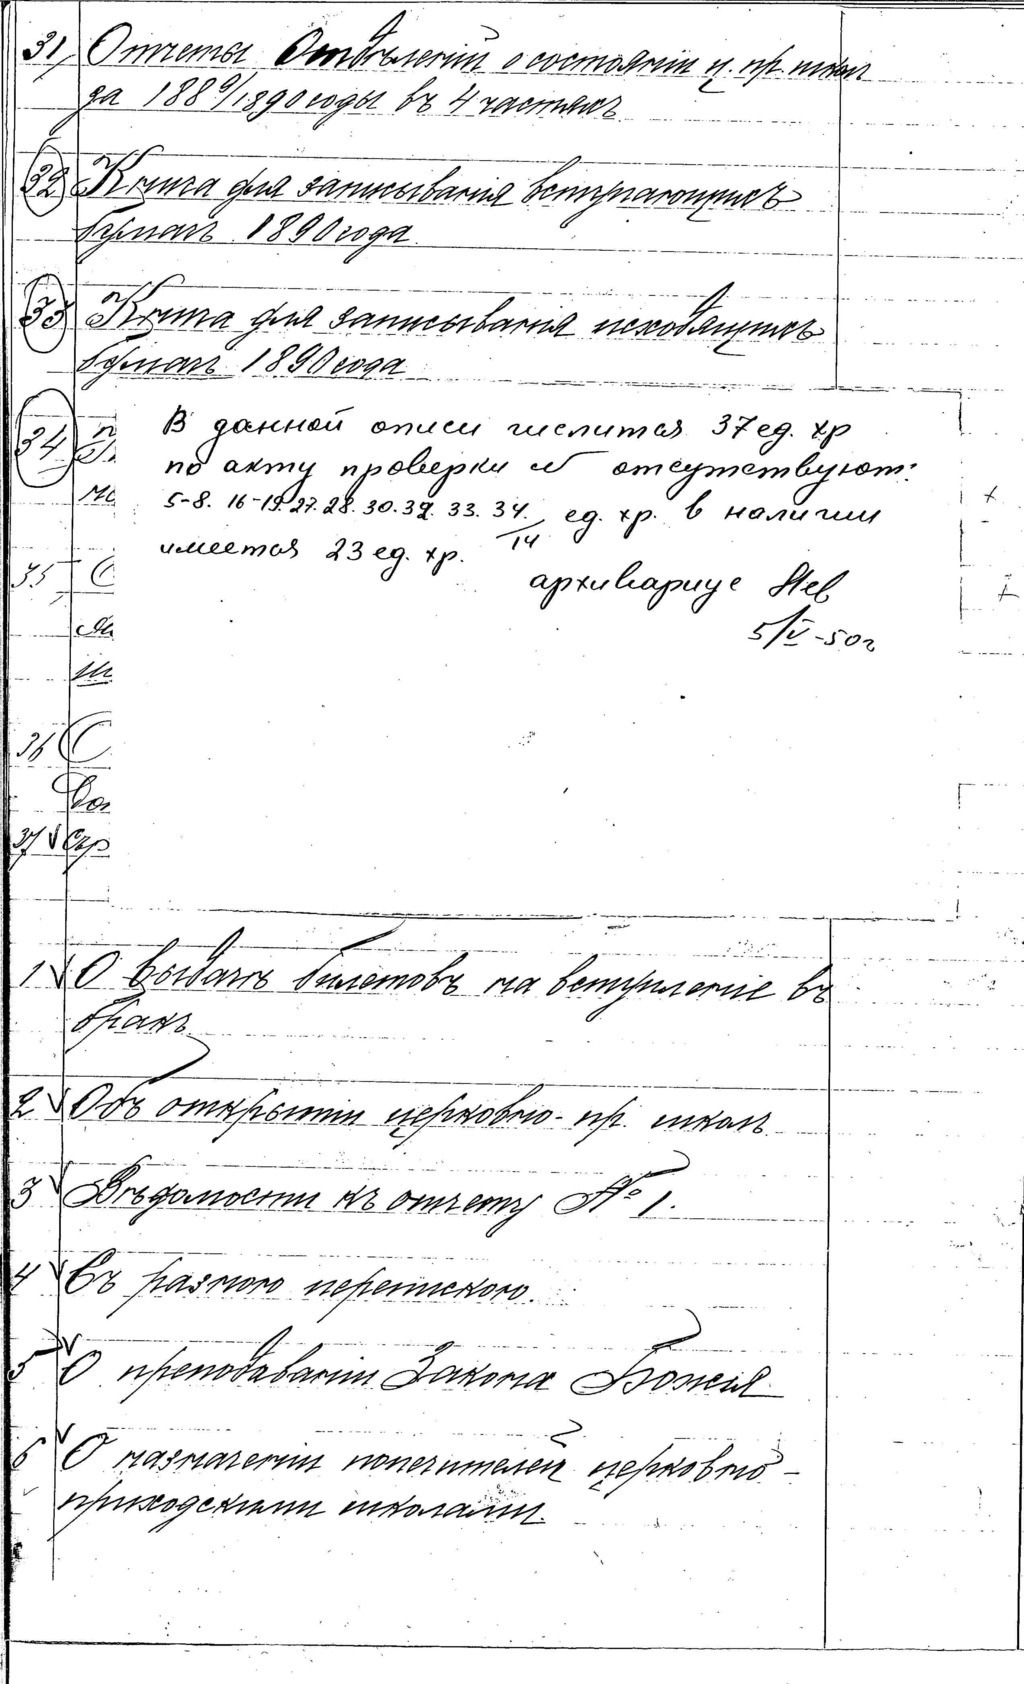 31, Отчеты Отдѣленій о состояніи ц. пр. школ
за 1889/1890 годы въ 4 частяхъ
32 Книга для записыванія вступающихъ
бумагъ 1890 года
33 Книга для записыванія исходящихъ
бумагъ 1890 года
34
В данной описи числится 37 ед. хр
по акту проверки № отсутствуют:
5-8. 16-19. 27. 28. 30. 32. 33. 34/14 ед. хр. в наличии
имеется 23 ед. хр.
архивариус
5/V-50г
35 С
36 С
37
1 О выдачѣ билетовъ на вступленіе въ
бракъ
2 Объ открытіи церковно-пр. школъ
3 Вѣдомости къ отчету № 1.
4 Съ разного перепискою.
5 О преподаваніи Закона Божія
6 О назначеніи попечителей церковно-
приходскими школами.